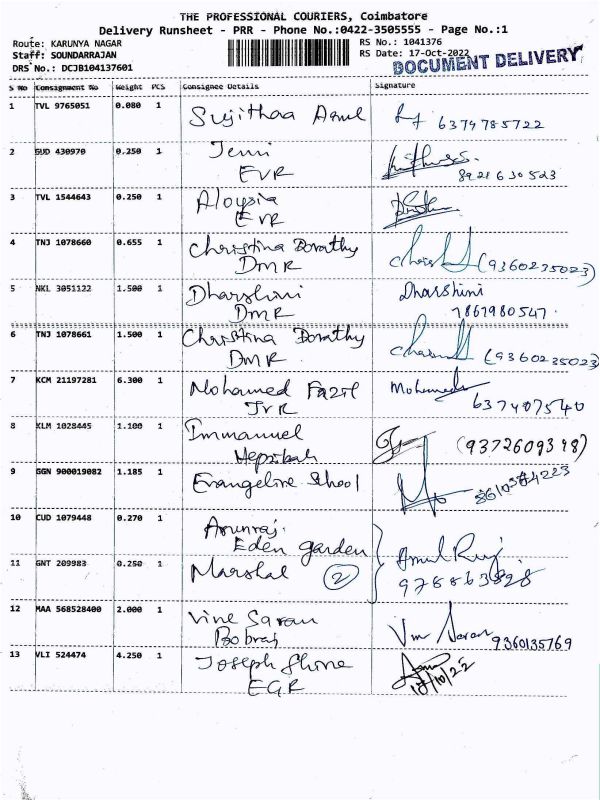 THE PROFESSIONAL COURIERS, Coimbatore
Delivery Runsheet - PRR - Phone No.:0422-3505555 - Page No.:1
Route: KARUNYA NAGAR RS No.: 1041376
Staff: SOUNDARRAJAN RS Date: 17-Oct-2022
DRS No.: DCJB104137601 DOCUMENT DELIVERY
S No Consignment No Weight PCS Consignee Details Signature
1 TVL 9765051 0.080 1 Sujithaa Arul 6374785722
2 GUD 430970 0.250 1 Jenni
EVR 8921630523
3 TVL 1544643 0.250 1 Aloysia
EVR
4 TNJ 1078660 0.655 1 Christina Dorathy
DMR (9360235023)
5 NKL 3051122 1.500 1 Dharshini Dharshini
DMR 7867980547
6 TNJ 1078661 1.500 1 Christina Dorathy
DMR (9360235023)
7 KCM 21197281 6.300 1 Mohamed Fazil Mohamed
JVR 637407540
8 KLM 1028445 1.100 1 Immanuel
Hepzibah (9372609398)
9 GGN 900019082 1.185 1 Evangeline School
10 CUD 1079448 0.270 1 Arunraj.
Eden garden
11 GNT 209983 0.250 1 Marshal 2 9788863828
12 MAA 568528400 2.000 1 Vine Saran
9360135769
13 VLI 524474 4.250 1 Joseph Shine
EGR 18/10/22